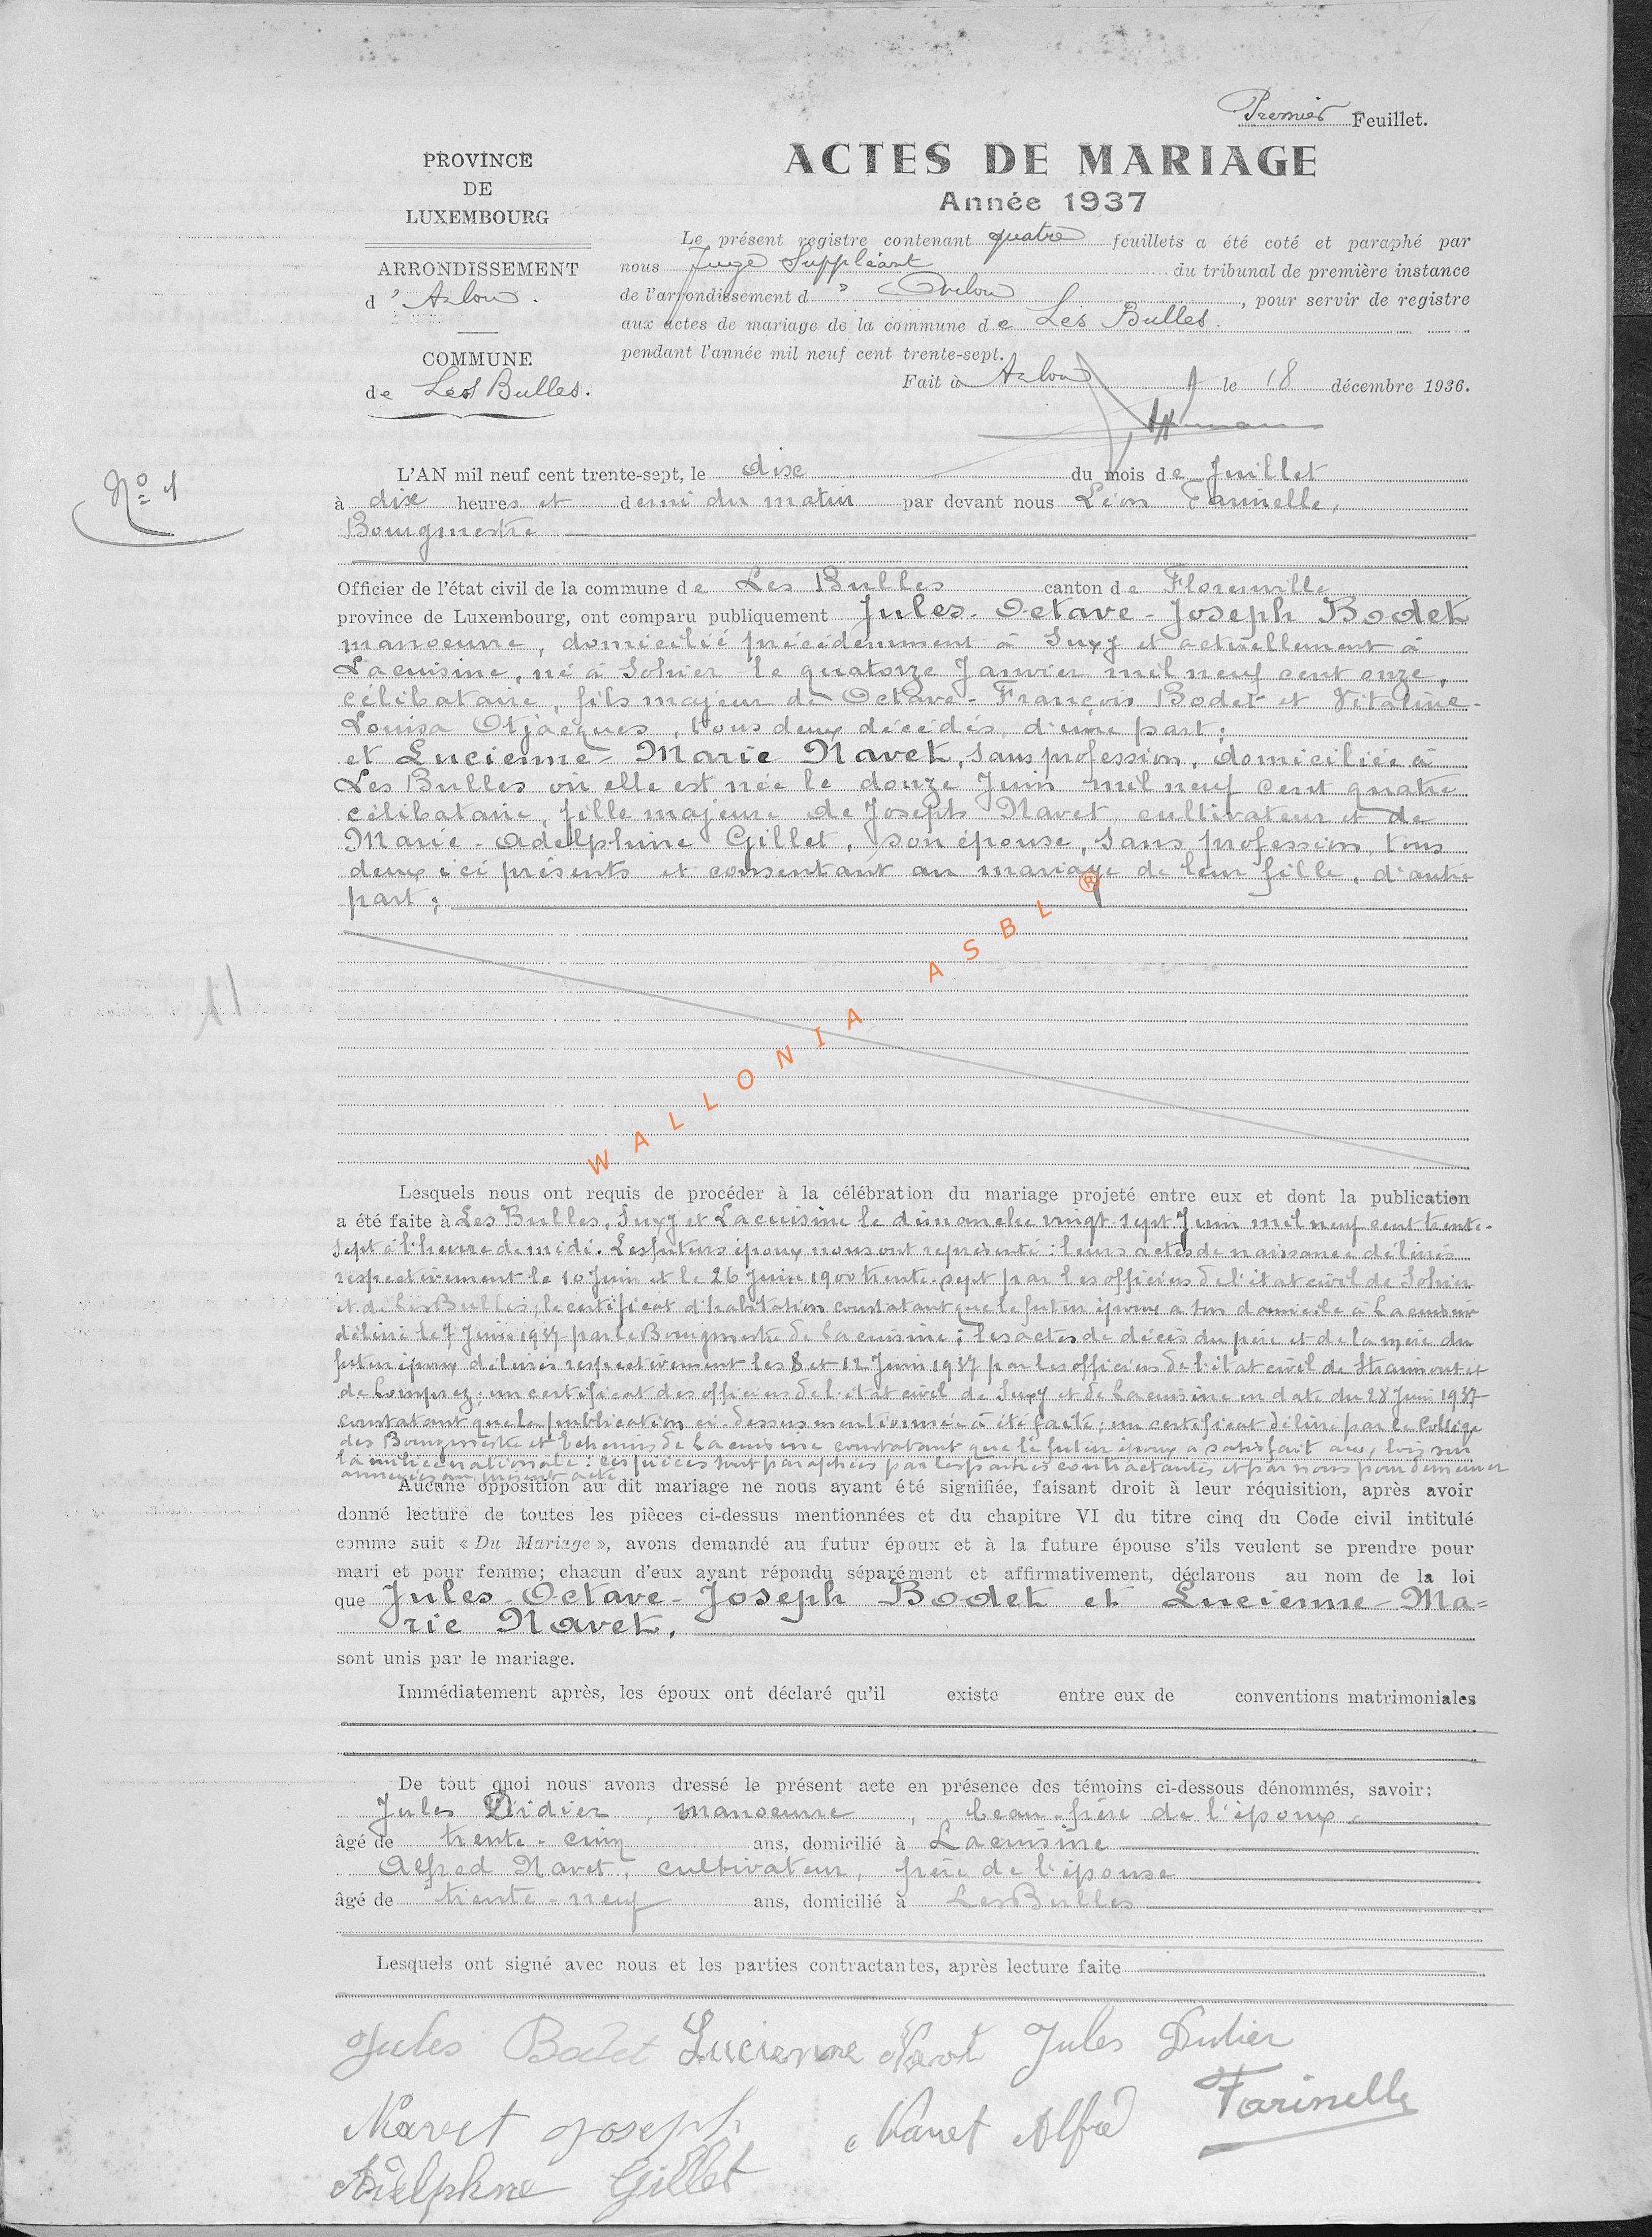 Premier Feuillet.
PROVINCE
DE
LUXEMBOURG
ARRONDISSEMENT
d'Arlon.
COMMUNE
de Les Bulles.
ACTES DE MARIAGE
Année 1937
Le présent registre contenant quatre feuillets a été coté et paraphé par
nous Juge Suppléant du tribunal de première instance
de l'arrondissement d'Arlon, pour servir de registre
aux actes de mariage de la commune de Les Bulles.
pendant l'année mil neuf cent trente-sept.
Fait à Arlon le 18 décembre 1936.
No 1
L'AN mil neuf cent trente-sept, le dix du mois de Juillet
à dix heures et demi du matin par devant nous Léon Farinelle,
Bourgmestre
Officier de l'état civil de la commune de Les Bulles canton de Florenville
province de Luxembourg, ont comparu publiquement Jules-Octave-Joseph Bodet
manoeuvre, domicilié précédemment à Suxy et actuellement à
Lacuisine, né à Sohier le quatorze Janvier mil neuf cent onze,
célibataire, fils majeur de Octave-François Bodet et Vitaline-
Louisa Otjacques, tous deux décédés, d'une part;
et Lucienne-Marie Navet, sans profession, domiciliée à
Les Bulles où elle est née le douze Juin mil neuf cent quatre
célibataire, fille majeure de Joseph Navet cultivateur et de
Marie-Adelphine Gillet, son épouse, sans profession, tous
deux ici présents et consentant au mariage de leur fille, d'autre
part;
WALLONIA ASBL ®
Lesquels nous ont requis de procéder à la célébration du mariage projeté entre eux et dont la publication
a été faite à Les Bulles, Suxy et Lacuisine le dimanche vingt-sept Juin mil neuf cent trente-
sept à l'heure de midi. Les futurs époux nous ont représenté: leurs actes de naissance délivrés
respectivement le 10 Juin et le 26 Juin 1900 trente-sept par les officiers de l'état civil de Sohier
et de Les Bulles; le certificat d'habitation constatant que le futur époux a son domicile à Lacuisine
délivré le 7 Juin 1937 par le Bourgmestre de Lacuisine; les actes de décès du père et de la mère du
futur époux délivrés respectivement les 8 et 12 Juin 1937 par les officiers de l'état civil de et
de Lomprez; un certificat des officiers de l'état civil de Suxy et de Lacuisine en date du 28 Juin 1937
constatant que la publication ci-dessus mentionnée a été faite; un certificat délivré par le Collège
des Bourgmestre et Echevins de Lacuisine constatant que le futur époux a satisfait aux lois sur
la milice nationale: ces pièces sont paraphées par les parties contractantes et par nous pour demeurer
annexées au présent acte
Aucune opposition au dit mariage ne nous ayant été signifiée, faisant droit à leur réquisition, après avoir
donné lecture de toutes les pièces ci-dessus mentionnées et du chapitre VI du titre cinq du Code civil intitulé
comme suit « Du Mariage », avons demandé au futur époux et à la future épouse s'ils veulent se prendre pour
mari et pour femme; chacun d'eux ayant répondu séparément et affirmativement, déclarons au nom de la loi
que Jules-Octave-Joseph Bodet et Lucienne-Ma=
rie Navet,
sont unis par le mariage.
Immédiatement après, les époux ont déclaré qu'il existe entre eux de conventions matrimoniales
De tout quoi nous avons dressé le présent acte en présence des témoins ci-dessous dénommés, savoir:
Jules Didier, manoeuvre, beau-frère de l'époux
âgé de trente-cinq ans, domicilié à Lacuisine
Alfred Navet, cultivateur, frère de l'épouse
âgé de trente-neuf ans, domicilié à Les Bulles
Lesquels ont signé avec nous et les parties contractantes, après lecture faite
Jules Bodet Lucienne Navet Jules Didier
Navet Joseph Navet Alfred Farinelle
Adelphine Gillet